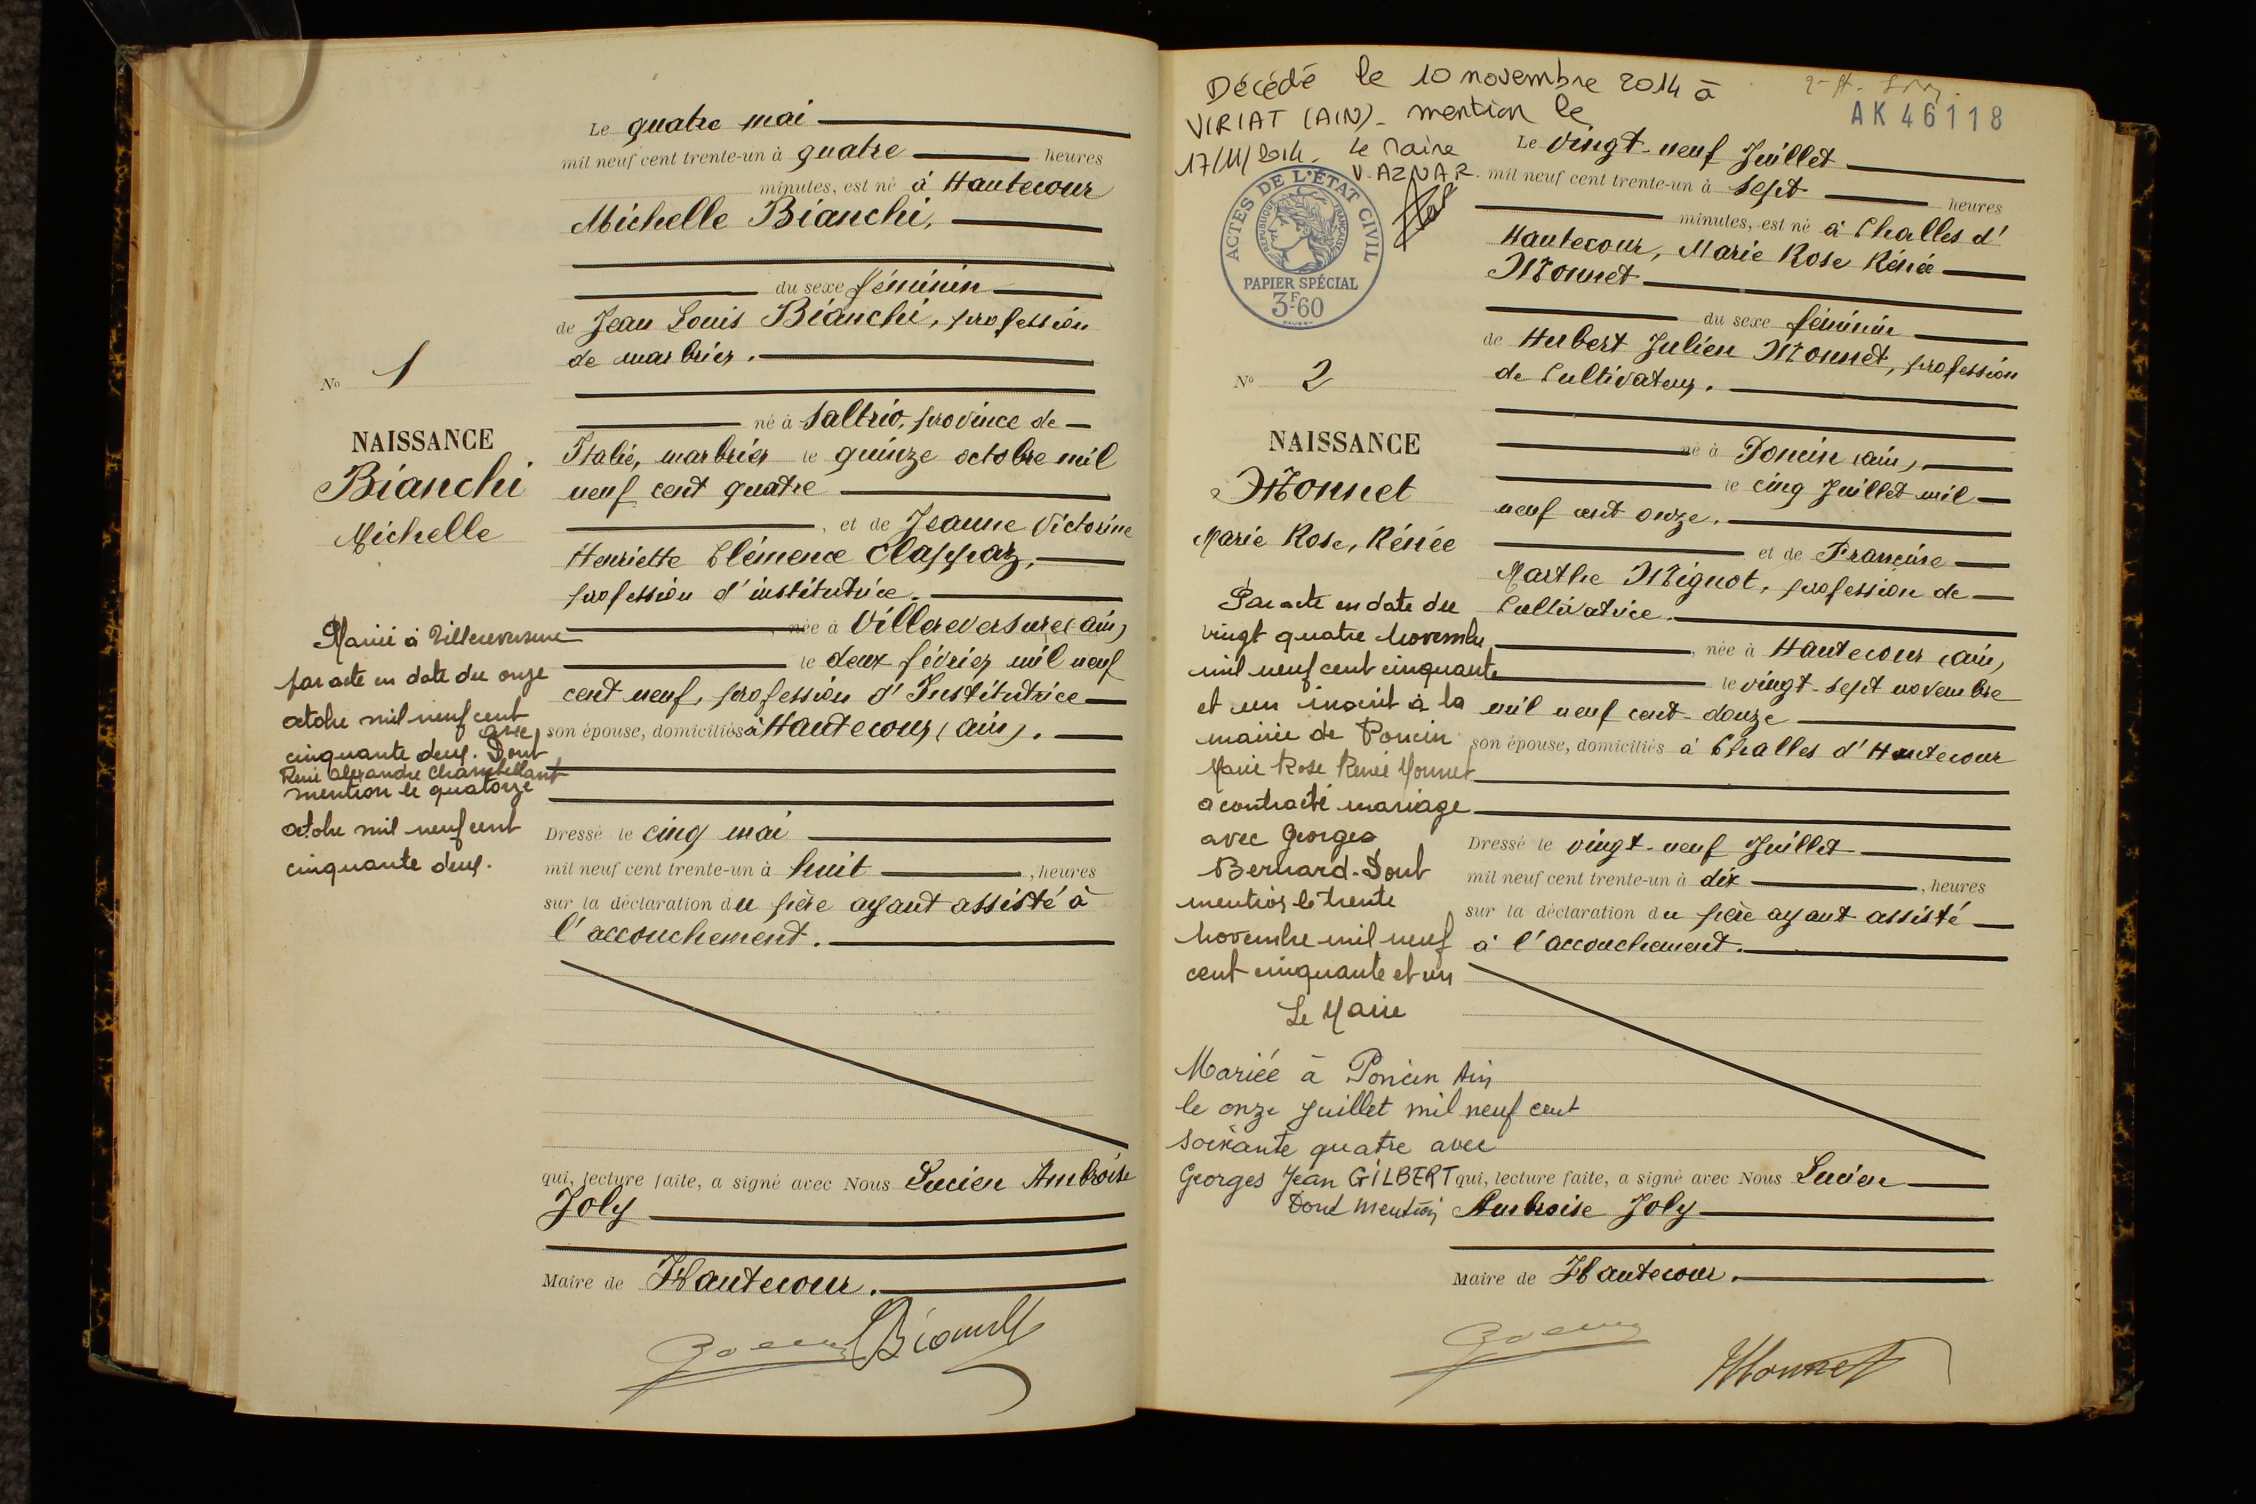 Le quatre mai
mil neuf cent trente-un à quatre heures
minutes, est né à Hautecour
Michelle Bianchi,
du sexe féminin
de Jean Louis Bianchi, profession
de marbrier.
né à Saltrio, province de
Italie, marbrier le quinze octobre mil
neuf cent quatre
, et de Jeanne Victorine
Henriette Clémence Clappaz,
profession d'institutrice.
, née à Villereversure (ain)
le deux février mil neuf
cent neuf, profession d'Institutrice
son épouse, domiciliés à Hautecour (ain).
Dressé le cinq mai
mil neuf cent trente-un à huit , heures
sur la déclaration du père ayant assisté à
l'accouchement.
qui, lecture faite, a signé avec Nous Lucien Ambroise
Joly
Maire de Hautecour.
Bianchi
No 1
NAISSANCE
Bianchi
Michelle
Mariée à Villereversure
par acte en date du onze
octobre mil neuf cent
cinquante deux. avec
René Alexandre Chambellant
Dont
mention le quatorze
octobre mil neuf cent
cinquante deux.
Décédé le 10 novembre 2014 à
VIRIAT (AIN) - mention le
17/11/2014. Le Maire
V. AZNAR.
AK 46118
ACTES DE L'ÉTAT CIVIL
RÉPUBLIQUE FRANÇAISE
PAPIER SPÉCIAL
3F60
No 2
NAISSANCE
Monnet
Marie Rose, Rénée
Par acte en date du
vingt quatre Novembre
mil neuf cent cinquante
et un inscrit à la
mairie de Poncin
Marie Rose Renée Monnet
a contracté mariage
avec Georges
Bernard. Dont
mention le trente
Novembre mil neuf
cent cinquante et un
Le Maire
Mariée à Poncin Ain
le onze Juillet mil neuf cent
soixante quatre avec
Georges Jean GILBERT
Dont mention
Le vingt-neuf Juillet
mil neuf cent trente-un à sept heures
minutes, est né à Challes d'
Hautecour, Marie Rose Rénée
Monnet
du sexe féminin
de Hubert Julien Monnet, profession
de Cultivateur.
né à Poncin (ain)
le cinq Juillet mil
neuf cent onze.
et de Francine
Marthe Mignot, profession de
Cultivatrice.
, née à Hautecour (ain)
le vingt-sept novembre
mil neuf cent-douze
son épouse, domiciliés à Challes d'Hautecour
Dressé le vingt-neuf Juillet
mil neuf cent trente-un à dix , heures
sur la déclaration du père ayant assisté
à l'accouchement.
qui, lecture faite, a signé avec Nous Lucien
Ambroise Joly
Maire de Hautecour.
Monnet